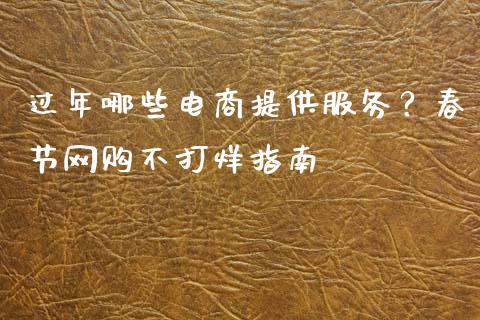 过年哪些电商提供服务？春
节网购不打烊指南